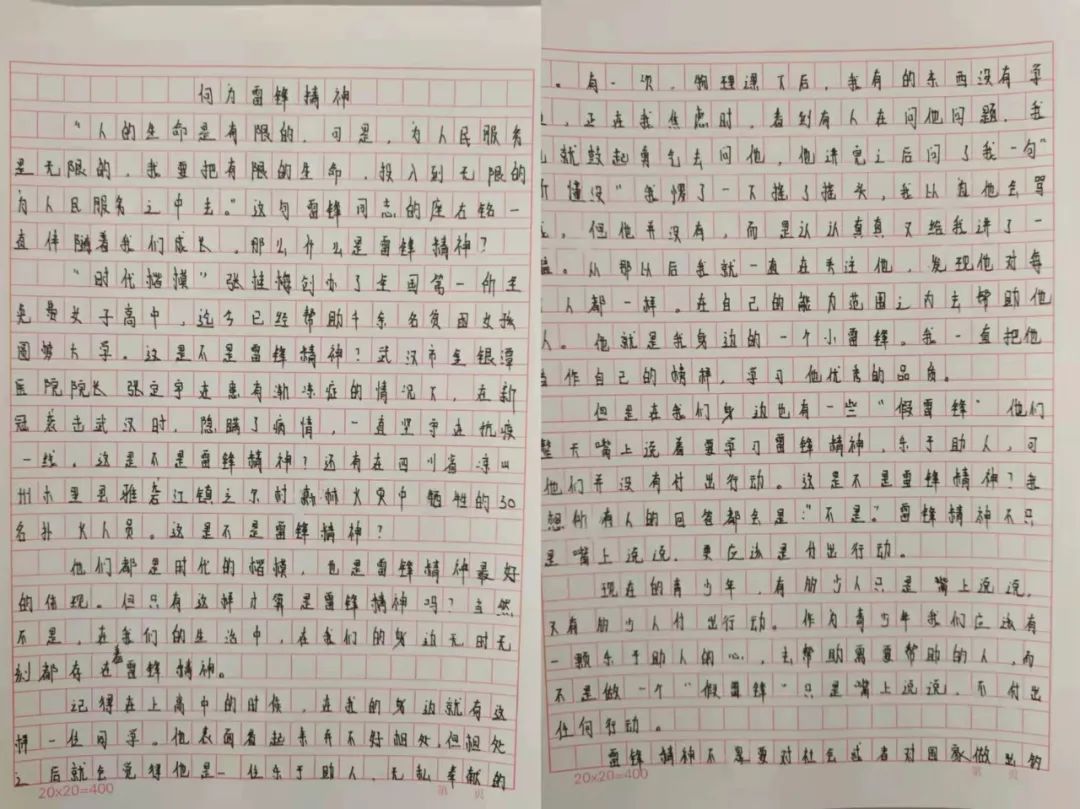 何为雷锋精神
“人的生命是有限的，可是，为人民服务
是无限的，我要把有限的生命，投入到无限的
为人民服务之中去。”这句雷锋同志的座右铭一
直伴随着我们成长，那么什么是雷锋精神？
“时代楷模”张桂梅创办了全国第一所全
免费女子高中，迄今已经帮助千余名贫困女孩
圆梦大学。这是不是雷锋精神？武汉市金银潭
医院院长张定宇在患有渐冻症的情况下，在新
冠袭击武汉时，隐瞒了病情，一直坚守在抗疫
一线。这是不是雷锋精神？还有在四川省凉山
州木里县雅砻江镇立尔村森林火灾中牺牲的30
名扑火人员。这是不是雷锋精神？
他们都是时代的楷模，也是雷锋精神最好
的体现。但只有这样才算是雷锋精神吗？当然
不是，在我们的生活中，在我们的身边无时无
刻都存在着雷锋精神。
记得在上高中的时候，在我的身边就有这
样一位同学。他表面看起来并不好相处，但相处
之后就会觉得他是一位乐于助人，无私奉献的
。有一次，物理课下后，我有的东西没有弄
，正在我焦虑时，看到有人在问他问题，我
就鼓起勇气去问他，他讲完之后问了我一句“
懂没”我愣了一下摇了摇头，我以为他会骂
，但他并没有，而是认认真真又给我讲了一
。从那以后我就一直在关注他，发现他对每
人都一样。在自己的能力范围之内去帮助他
人。他就是我身边的一个小雷锋。我一直把他
当作自己的榜样，学习他优秀的品质。
但是在我们身边也有一些“假雷锋”他们
整天嘴上说着要学习雷锋精神，乐于助人，可
他们并没有付出行动。这是不是雷锋精神？我
想所有人的回答都会是：“不是”。雷锋精神不只
是嘴上说说，更应该是付出行动。
现在的青少年，有的少人只是嘴上说说，
又有的少人付出行动。作为青少年我们应该有
一颗乐于助人的心，去帮助需要帮助的人，而
不是做一个“假雷锋”只是嘴上说说，不付出
任何行动。
雷锋精神不是要对社会或者对国家做出的
20×20=400
第 页
20×20=400
第 页